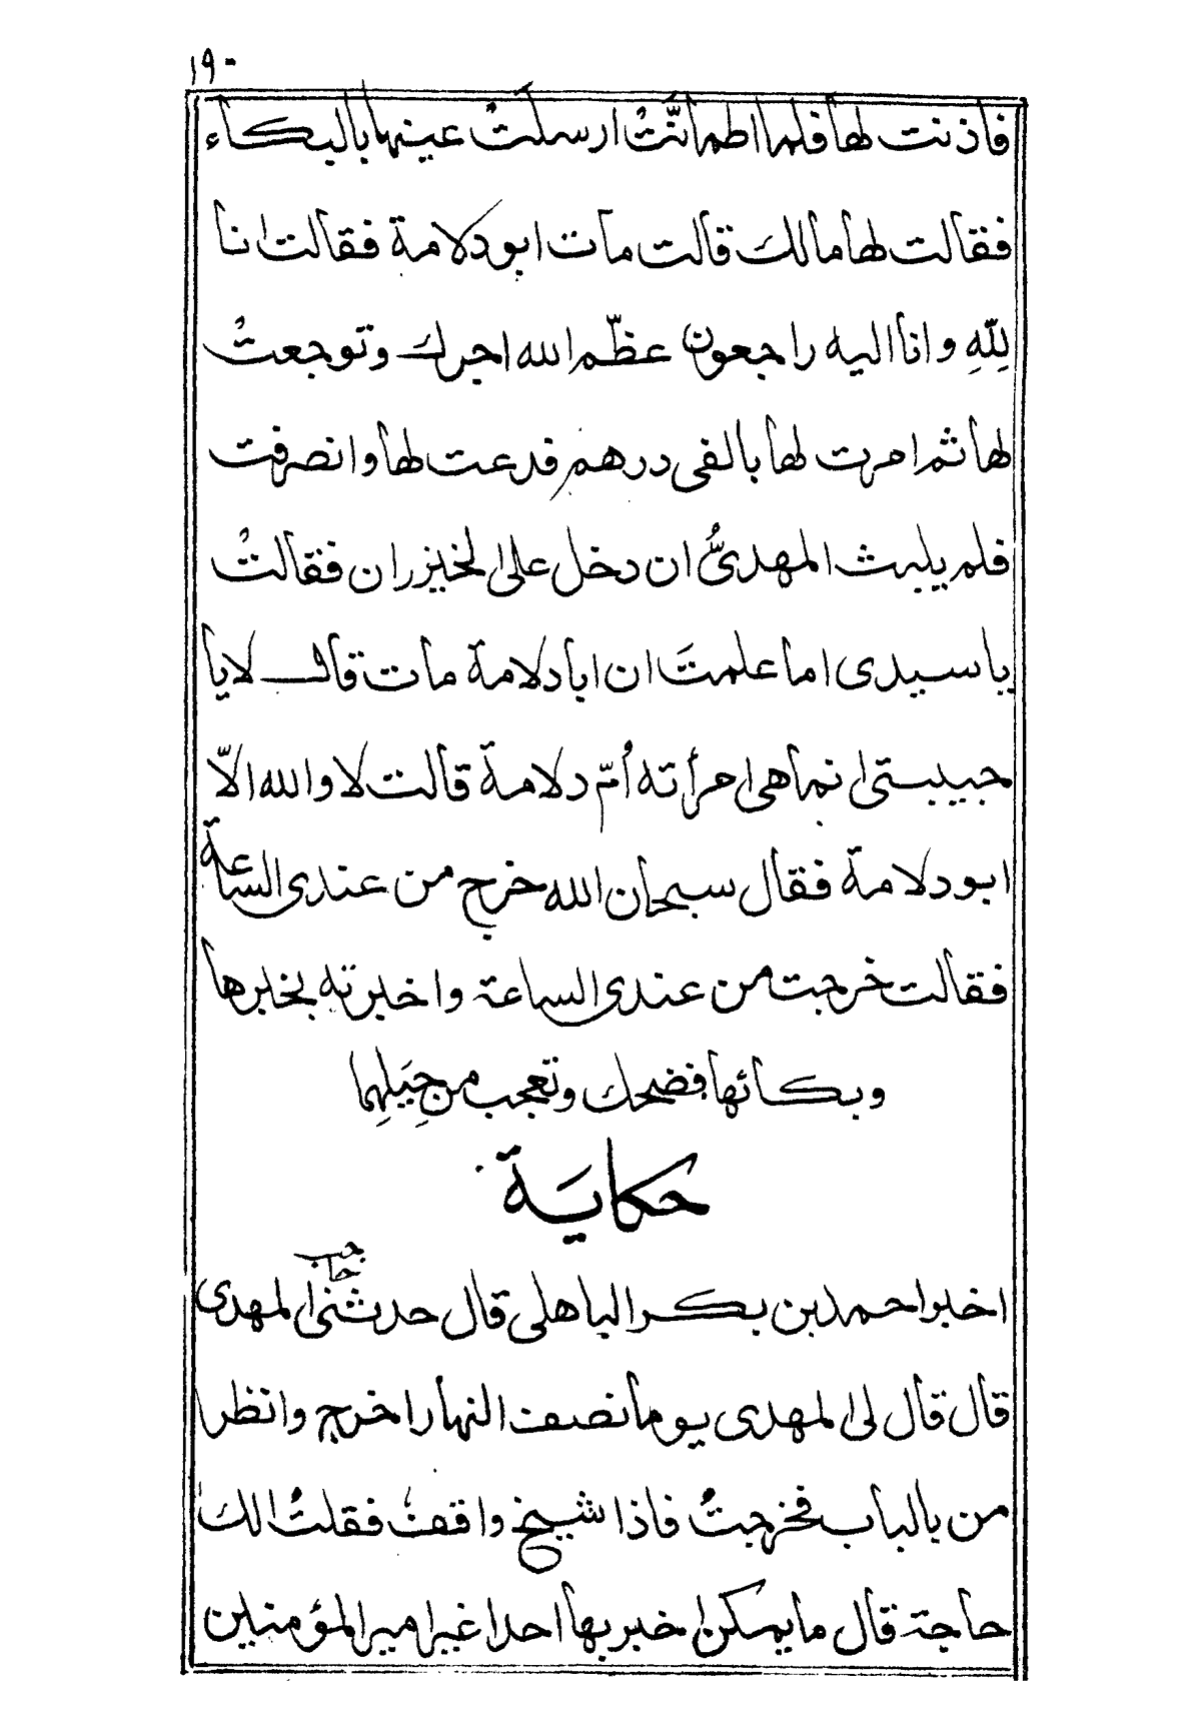 ١٩٠
فاذنت لها فلما اطمأنَّتْ ارسلتْ عينها بالبكاء
فقالت لها مالك قالت مات ابو دلامة فقالت انا
لِلّٰهِ وانا اليه راجعون عظّم الله اجرك وتوجعتْ
لها ثم امرت لها بالفى درهم فدعت لها وانصرفت
فلم يلبث المهدىُّ ان دخل على الخيزران فقالتْ
يا سيدى اما علمتَ ان ابا دلامة مات قال لا يا
حبيبتى انما هى امرأته أمّ دلامة قالت لا والله الّا
ابو دلامة فقال سبحان الله خرج من عندى الساعة
فقالت خرجت من عندى الساعة واخبرته بخبرها
وبكائها فضحك وتعجب من حِيَلِهِما
حكايَة
حاجب
اخبر احمد بن بكر الباهلى قال حدثنى المهدى
قال قال لى المهدى يوما نصف النهار اخرج وانظر
من بالباب فخرجتُ فاذا شيخ واقفٌ فقلتُ الك
حاجة قال ما يمكن اخبر بها احدا غير امير المؤمنين